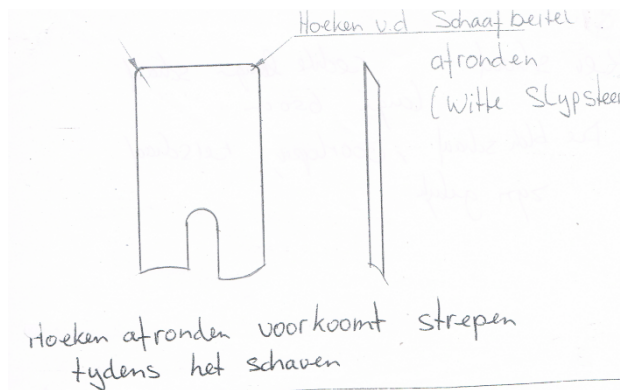 Hoeken v.d Schaafbeitel
afronden
(Witte Slypsteen
Hoeken afronden voorkoomt strepen
tydens het schaven